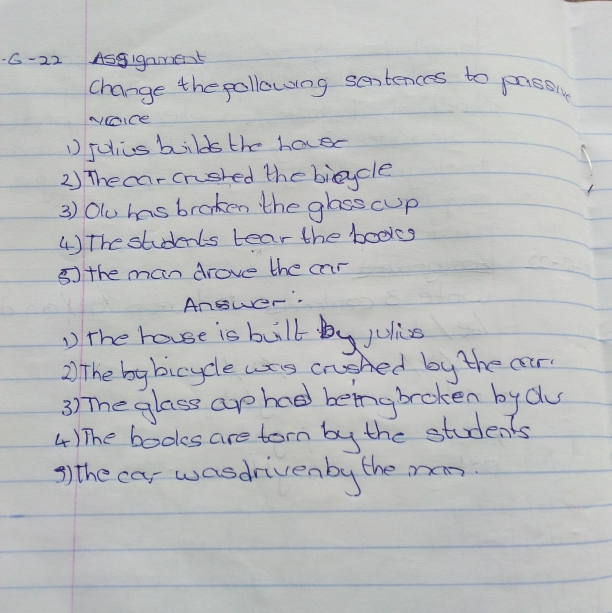 .6-22 Assignment
Change the following sentences to passive
voice
1) Julius builds the house
2) The car crushed the bicycle
3) Olu has broken the glass cup
4) The students tear the books
5) the man drove the car
Answer:
1) The house is built by Julius
2) The by bicycle was crushed by the car.
3) The glass cup had being broken by Olu
4) The books are torn by the students
5) the car was driven by the man.